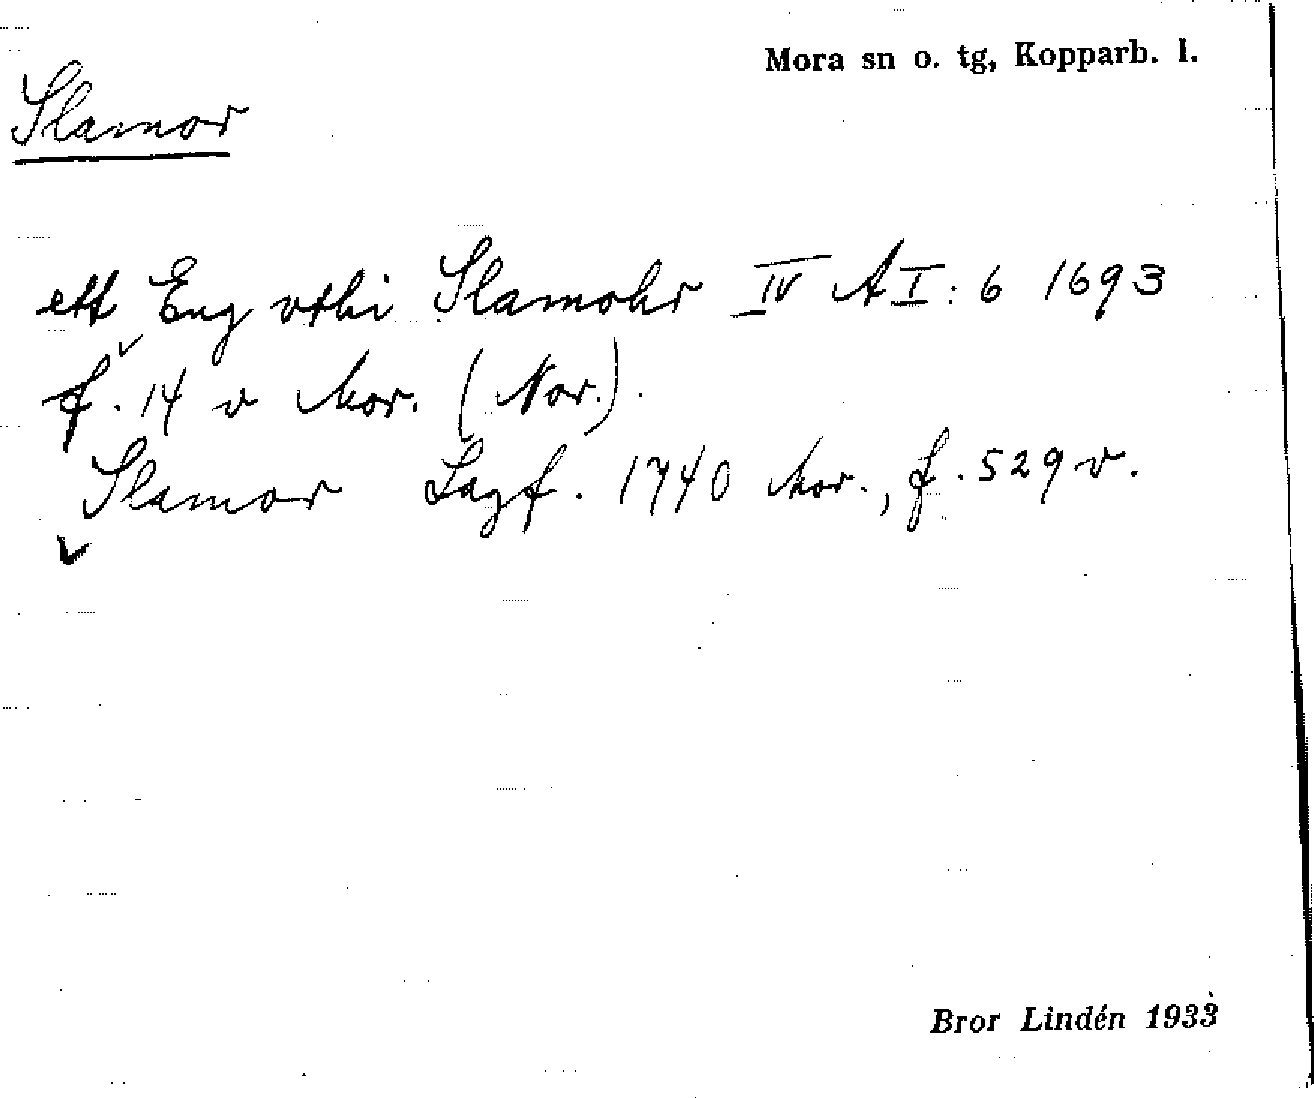 Mora sn o. tg, Kopparb. l.
Slamor
ett Eng vthi Slamohr IV A I: 6 1693
f. 14 v Mor. (Nor.).
Slamor Lagf. 1740 Mor., f. 529 v.
Bror Lindén 1933